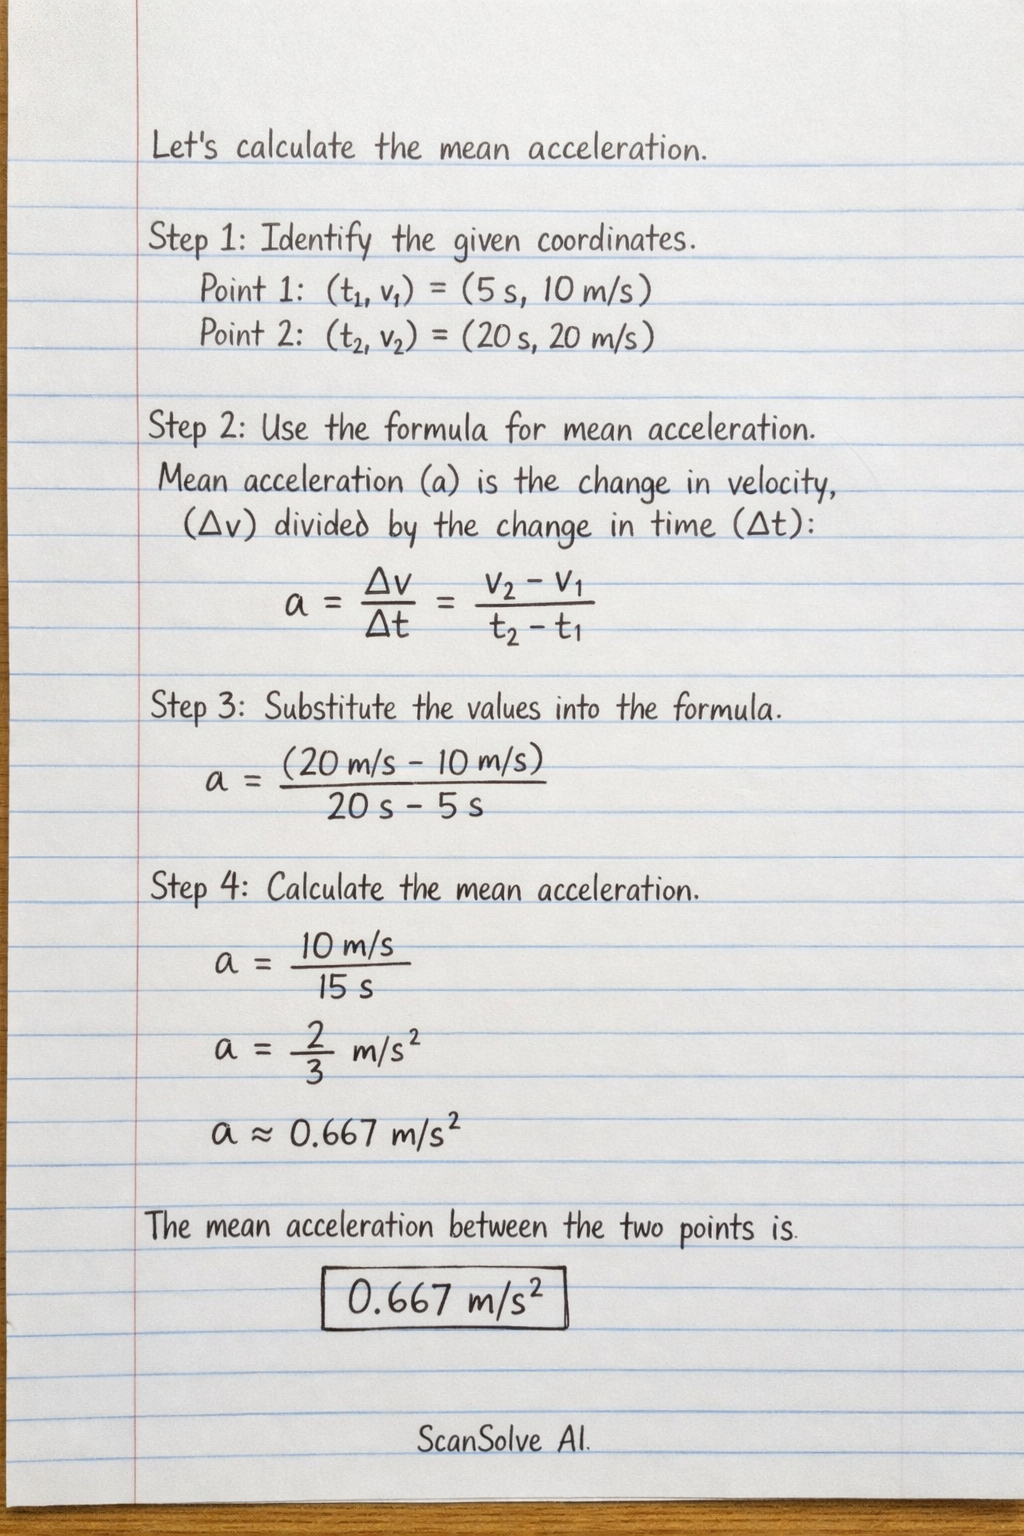 Let's calculate the mean acceleration.
Step 1: Identify the given coordinates.
Point 1: (t₁, v₁) = (5 s, 10 m/s)
Point 2: (t₂, v₂) = (20 s, 20 m/s)
Step 2: Use the formula for mean acceleration.
Mean acceleration (a) is the change in velocity,
(Δv) divided by the change in time (Δt):
a = Δv/Δt = (v₂ - v₁)/(t₂ - t₁)
Step 3: Substitute the values into the formula.
a = (20 m/s - 10 m/s)/(20 s - 5 s)
Step 4: Calculate the mean acceleration.
a = 10 m/s / 15 s
a = 2/3 m/s²
a ≈ 0.667 m/s²
The mean acceleration between the two points is.
0.667 m/s²
ScanSolve AI.